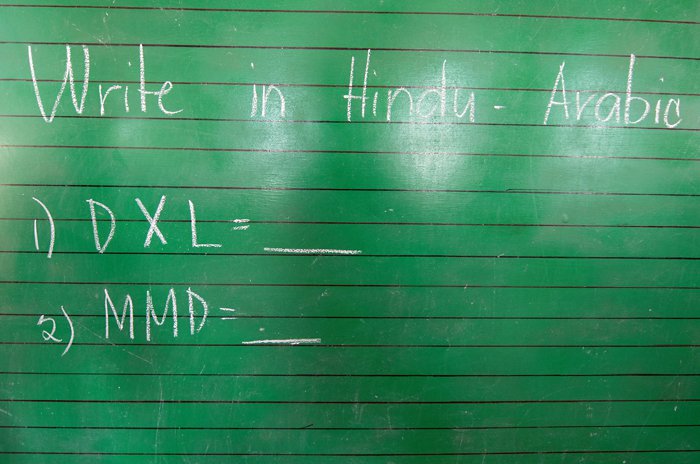 Write in Hindu - Arabic
1) DXL = ___
2) MMD = ___